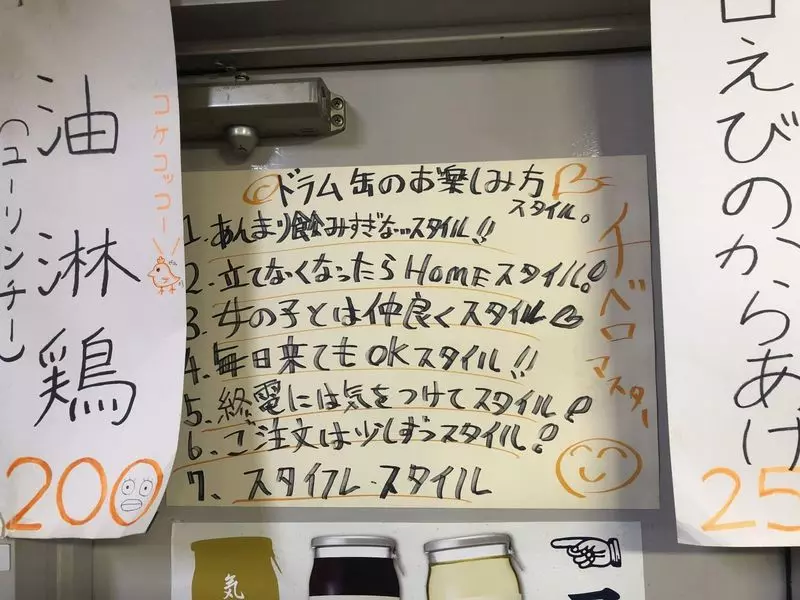 油淋鶏
(ユーリンチー)
コケコッコー
200
ドラム缶のお楽しみ方
スタイル。
1. あんまり飲みすぎないスタイル!!
2. 立てなくなったらHOMEスタイル!
3. 女の子とは仲良くスタイル
4. 毎日来てもOKスタイル!!
5. 終電には気をつけてスタイル!
6. ご注文は少しずつスタイル!
7、スタイル・スタイル
イチベロマスター
えびのからあげ
25
気